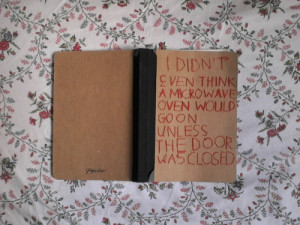 I DIDN'T
EVEN THINK
A MICROWAVE
OVEN WOULD
GO ON
UNLESS
THE DOOR
WAS CLOSED